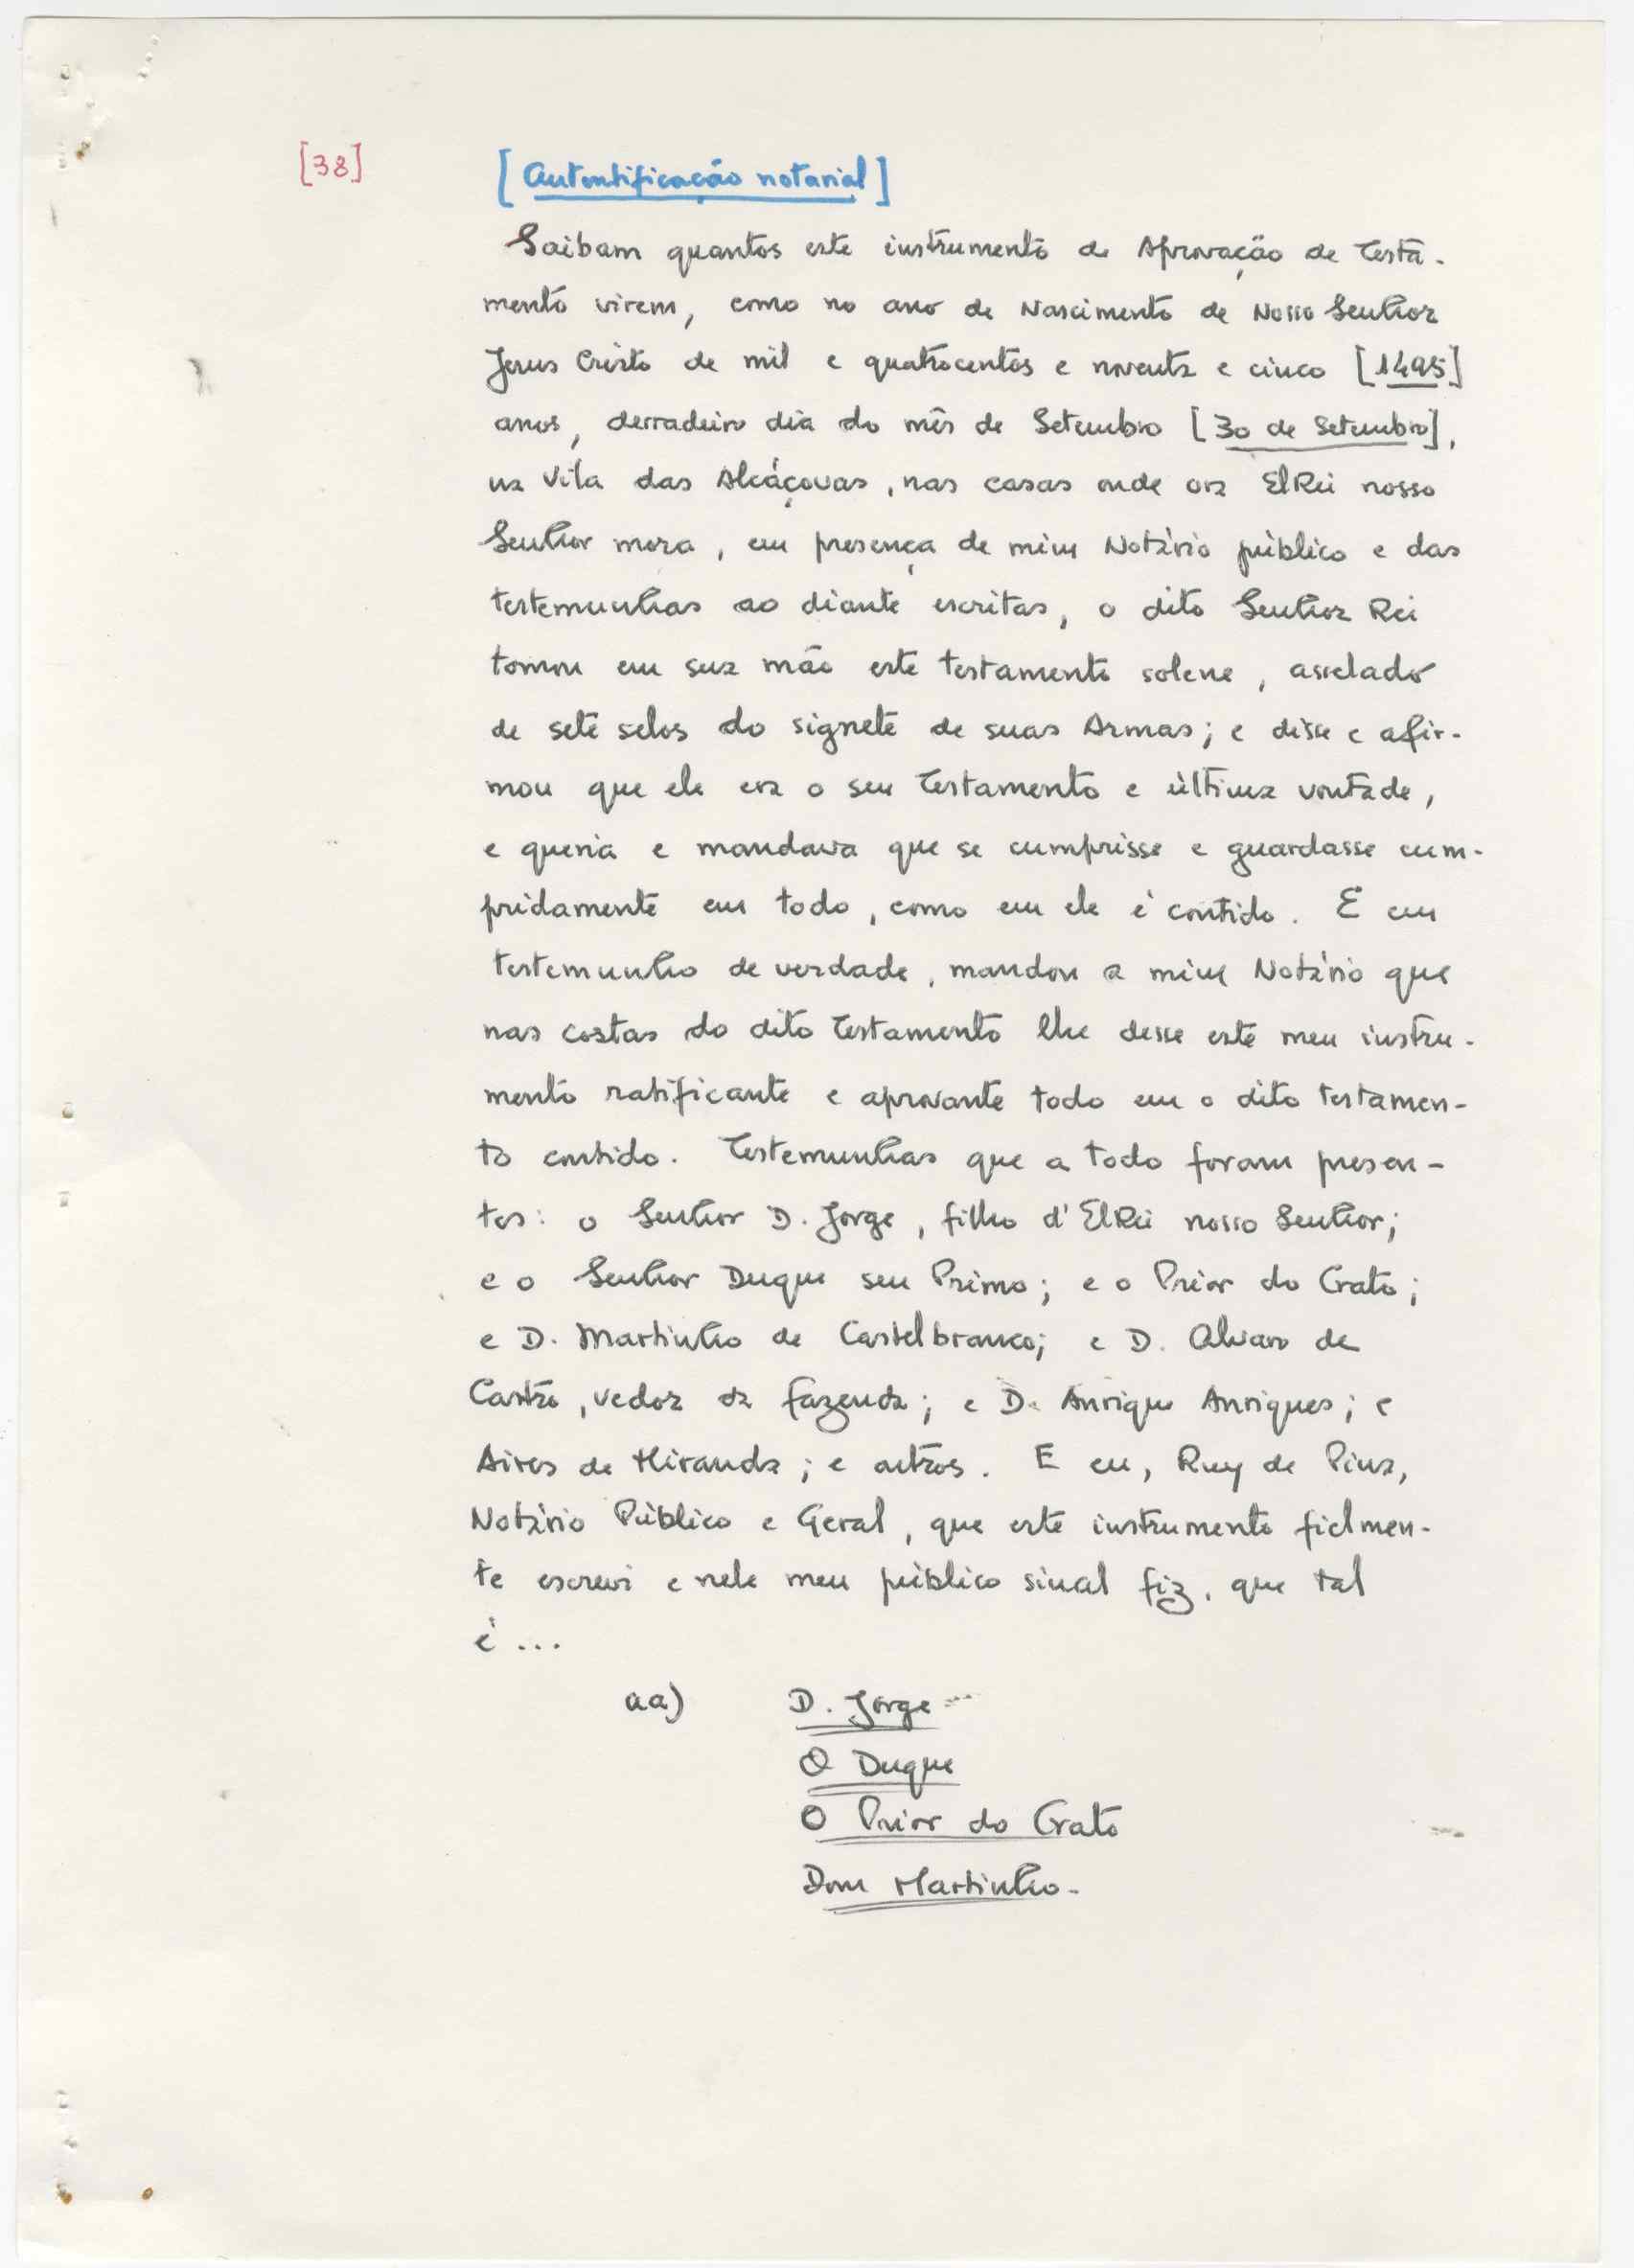 [38]
[Autentificação notarial]
Saibam quantos este instrumento de Aprovação de Testa-
mento virem, como no ano de Nascimento de Nosso Senhor
Jesus Cristo de mil e quatrocentos e noventa e cinco [1495]
anos, derradeiro dia do mês de Setembro [30 de Setembro],
na Vila das Alcáçovas, nas casas onde ora ElRei nosso
Senhor mora, em presença de mim Notário público e das
testemunhas ao diante escritas, o dito Senhor Rei
tomou em sua mão este testamento solene, asselado
de sete selos do signete de suas Armas; e disse e afir-
mou que ele era o seu Testamento e última vontade,
e queria e mandava que se cumprisse e guardasse cum-
pridamente em todo, como em ele é contido. E em
testemunho de verdade, mandou a mim Notário que
nas costas do dito Testamento lhe desse este meu instru-
mento ratificante e aprovante todo em o dito testamen-
to contido. Testemunhas que a todo foram presen-
tes: o Senhor D. Jorge, filho d'ElRei nosso Senhor;
e o Senhor Duque seu Primo; e o Prior do Crato;
e D. Martinho de Castelbranco; e D. Alvaro de
Castro, vedor da fazenda; e D. Anrique Anriques; e
Aires de Miranda; e outros. E eu, Ruy de Pina,
Notário Público e Geral, que este instrumento fielmen-
te escrevi e nele meu público sinal fiz, que tal
é ...
aa) D. Jorge
O Duque
O Prior do Crato
Dom Martinho.